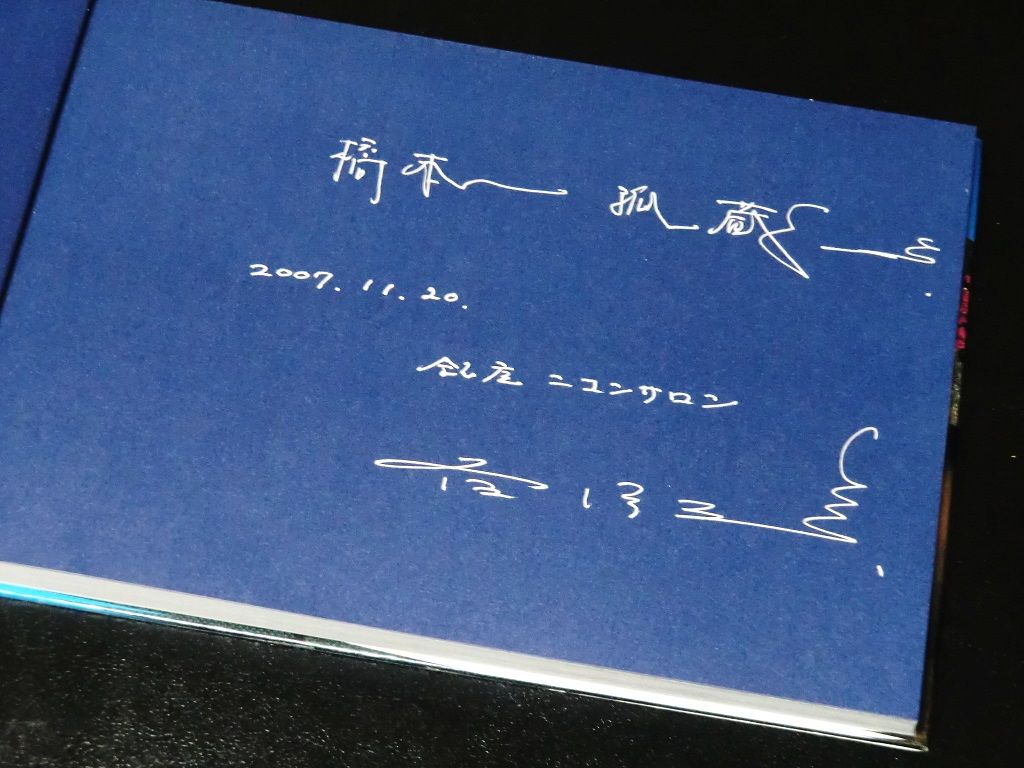 橋本 孤蔵
2007.11.20.
銀座 ニコンサロン